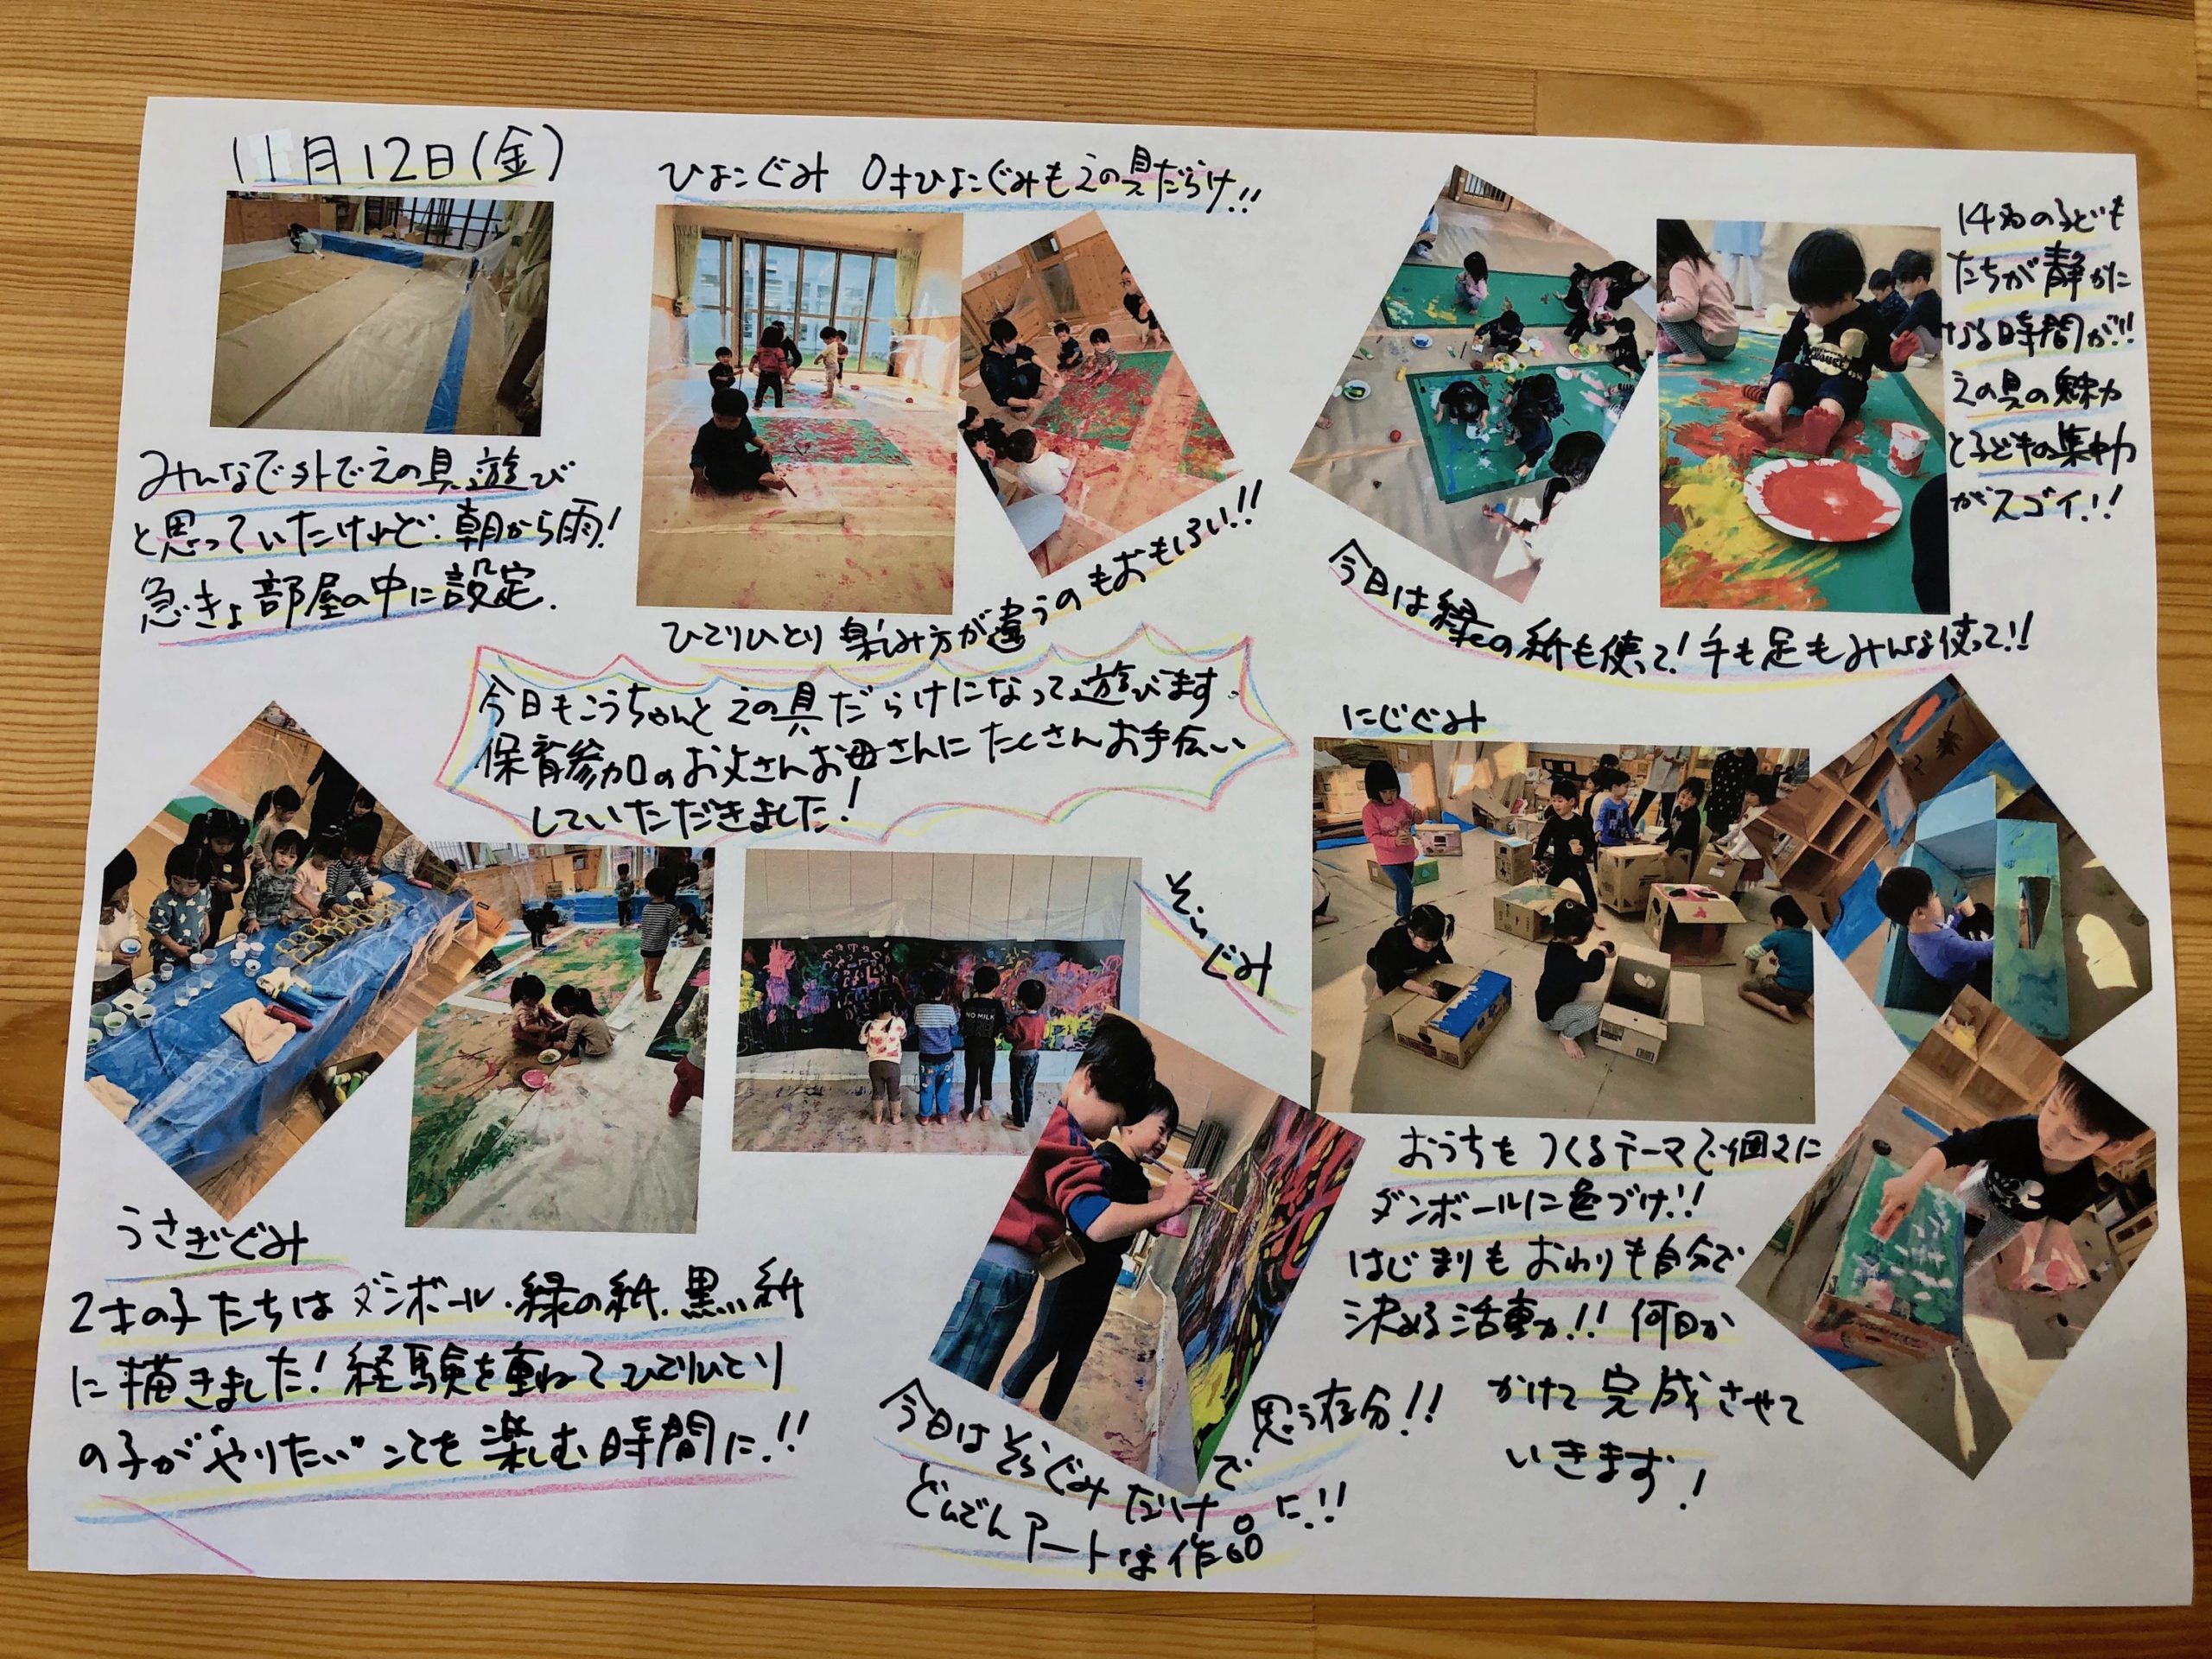 11月12日(金)
みんなで外でえの具遊び
と思っていたけれど、朝から雨！
急きょ部屋の中に設定．
ひよこぐみ 0才ひよこぐみもえの具だらけ!!
ひとりひとり楽しみ方が違うのもおもしろい!!
14名の子ども
たちが静かに
なる時間が!!
えの具の魅力
と子どもの集中力
がスゴイ!!
今日は緑の紙も使って！手も足もみんな使って!!
今日もこうちゃんとえの具だらけになって遊びます．
保育参加のお父さんお母さんにたくさんお手伝い
していただきました！
うさぎぐみ
2才の子たちはダンボール、緑の紙、黒い紙
に描きました！経験を重ねてひとりひとり
の子が"やりたい"ことを楽しむ時間に!!
そらぐみ
NO MILK
今日はそらぐみだけで
思う存分!!
どんどんアートな作品に!!
にじぐみ
おうちをつくるテーマで個々に
ダンボールに色づけ!!
はじまりもおわりも自分で
決める活動!! 何日か
かけて完成させて
いきます！